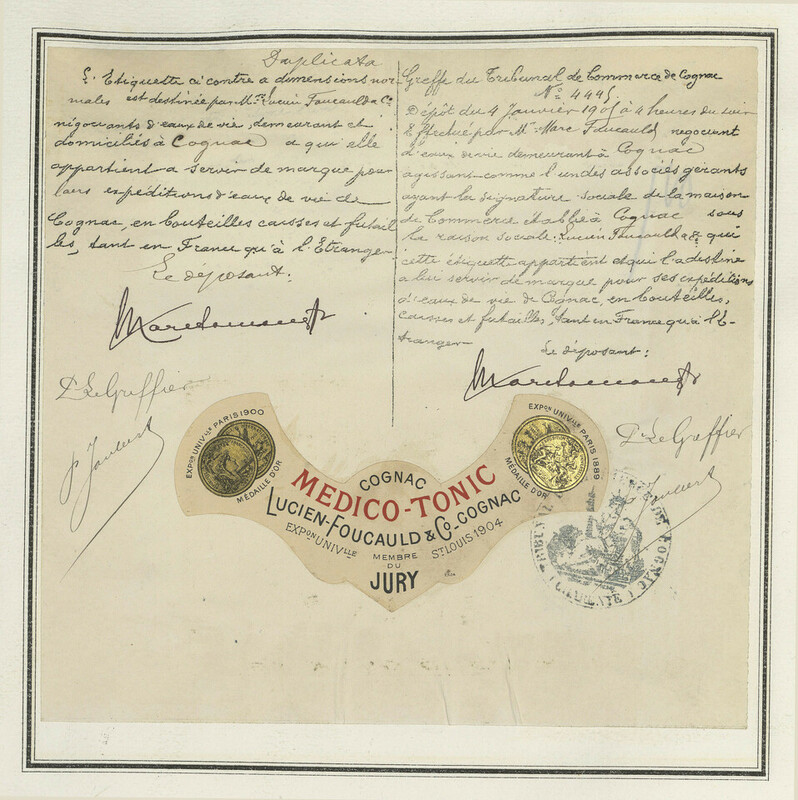 Duplicata
L'Etiquette ci contre a dimensions nor-
males est destinée par Mrs Lucien Foucauld & Co
négociants d'eaux de vie, demeurant et
domiciliés à Cognac a qui elle
appartient a servir de marque pour
leurs expéditions d'eaux de vie de
Cognac, en bouteilles caisses et futail-
les, tant en France qu'à l'Etranger
Le deposant:
P. Le Greffier
P. Joubert
Greffe du Tribunal de Commerce de Cognac
No 4445
Dépôt du 4 Janvier 1905 à 4 heures du soir
Effectué par Mr Marc Foucauld negociant
d'eaux de vie demeurant à Cognac
agissant comme l'un des associés gérants
ayant la signature sociale de la maison
de Commerce établie à Cognac sous
la raison sociale: Lucien Foucauld & Co qui
cette étiquette appartient et qui l'a destine
a lui servir de marque pour ses expéditions
d'eaux de vie de Cognac, en bouteilles,
caisses et futailles, tant en France qu'à l'E-
tranger
Le déposant:
P. Le Greffier
P. Joubert
EXPON UNIVLLE PARIS 1900
MÉDAILLE D'OR
EXPON UNIVLLE PARIS 1889
MÉDAILLE D'OR
COGNAC
MEDICO-TONIC
LUCIEN-FOUCAULD & Co-COGNAC
EXPON UNIVLLE ST LOUIS 1904
MEMBRE
DU
JURY
TRIBUNAL DE COGNAC